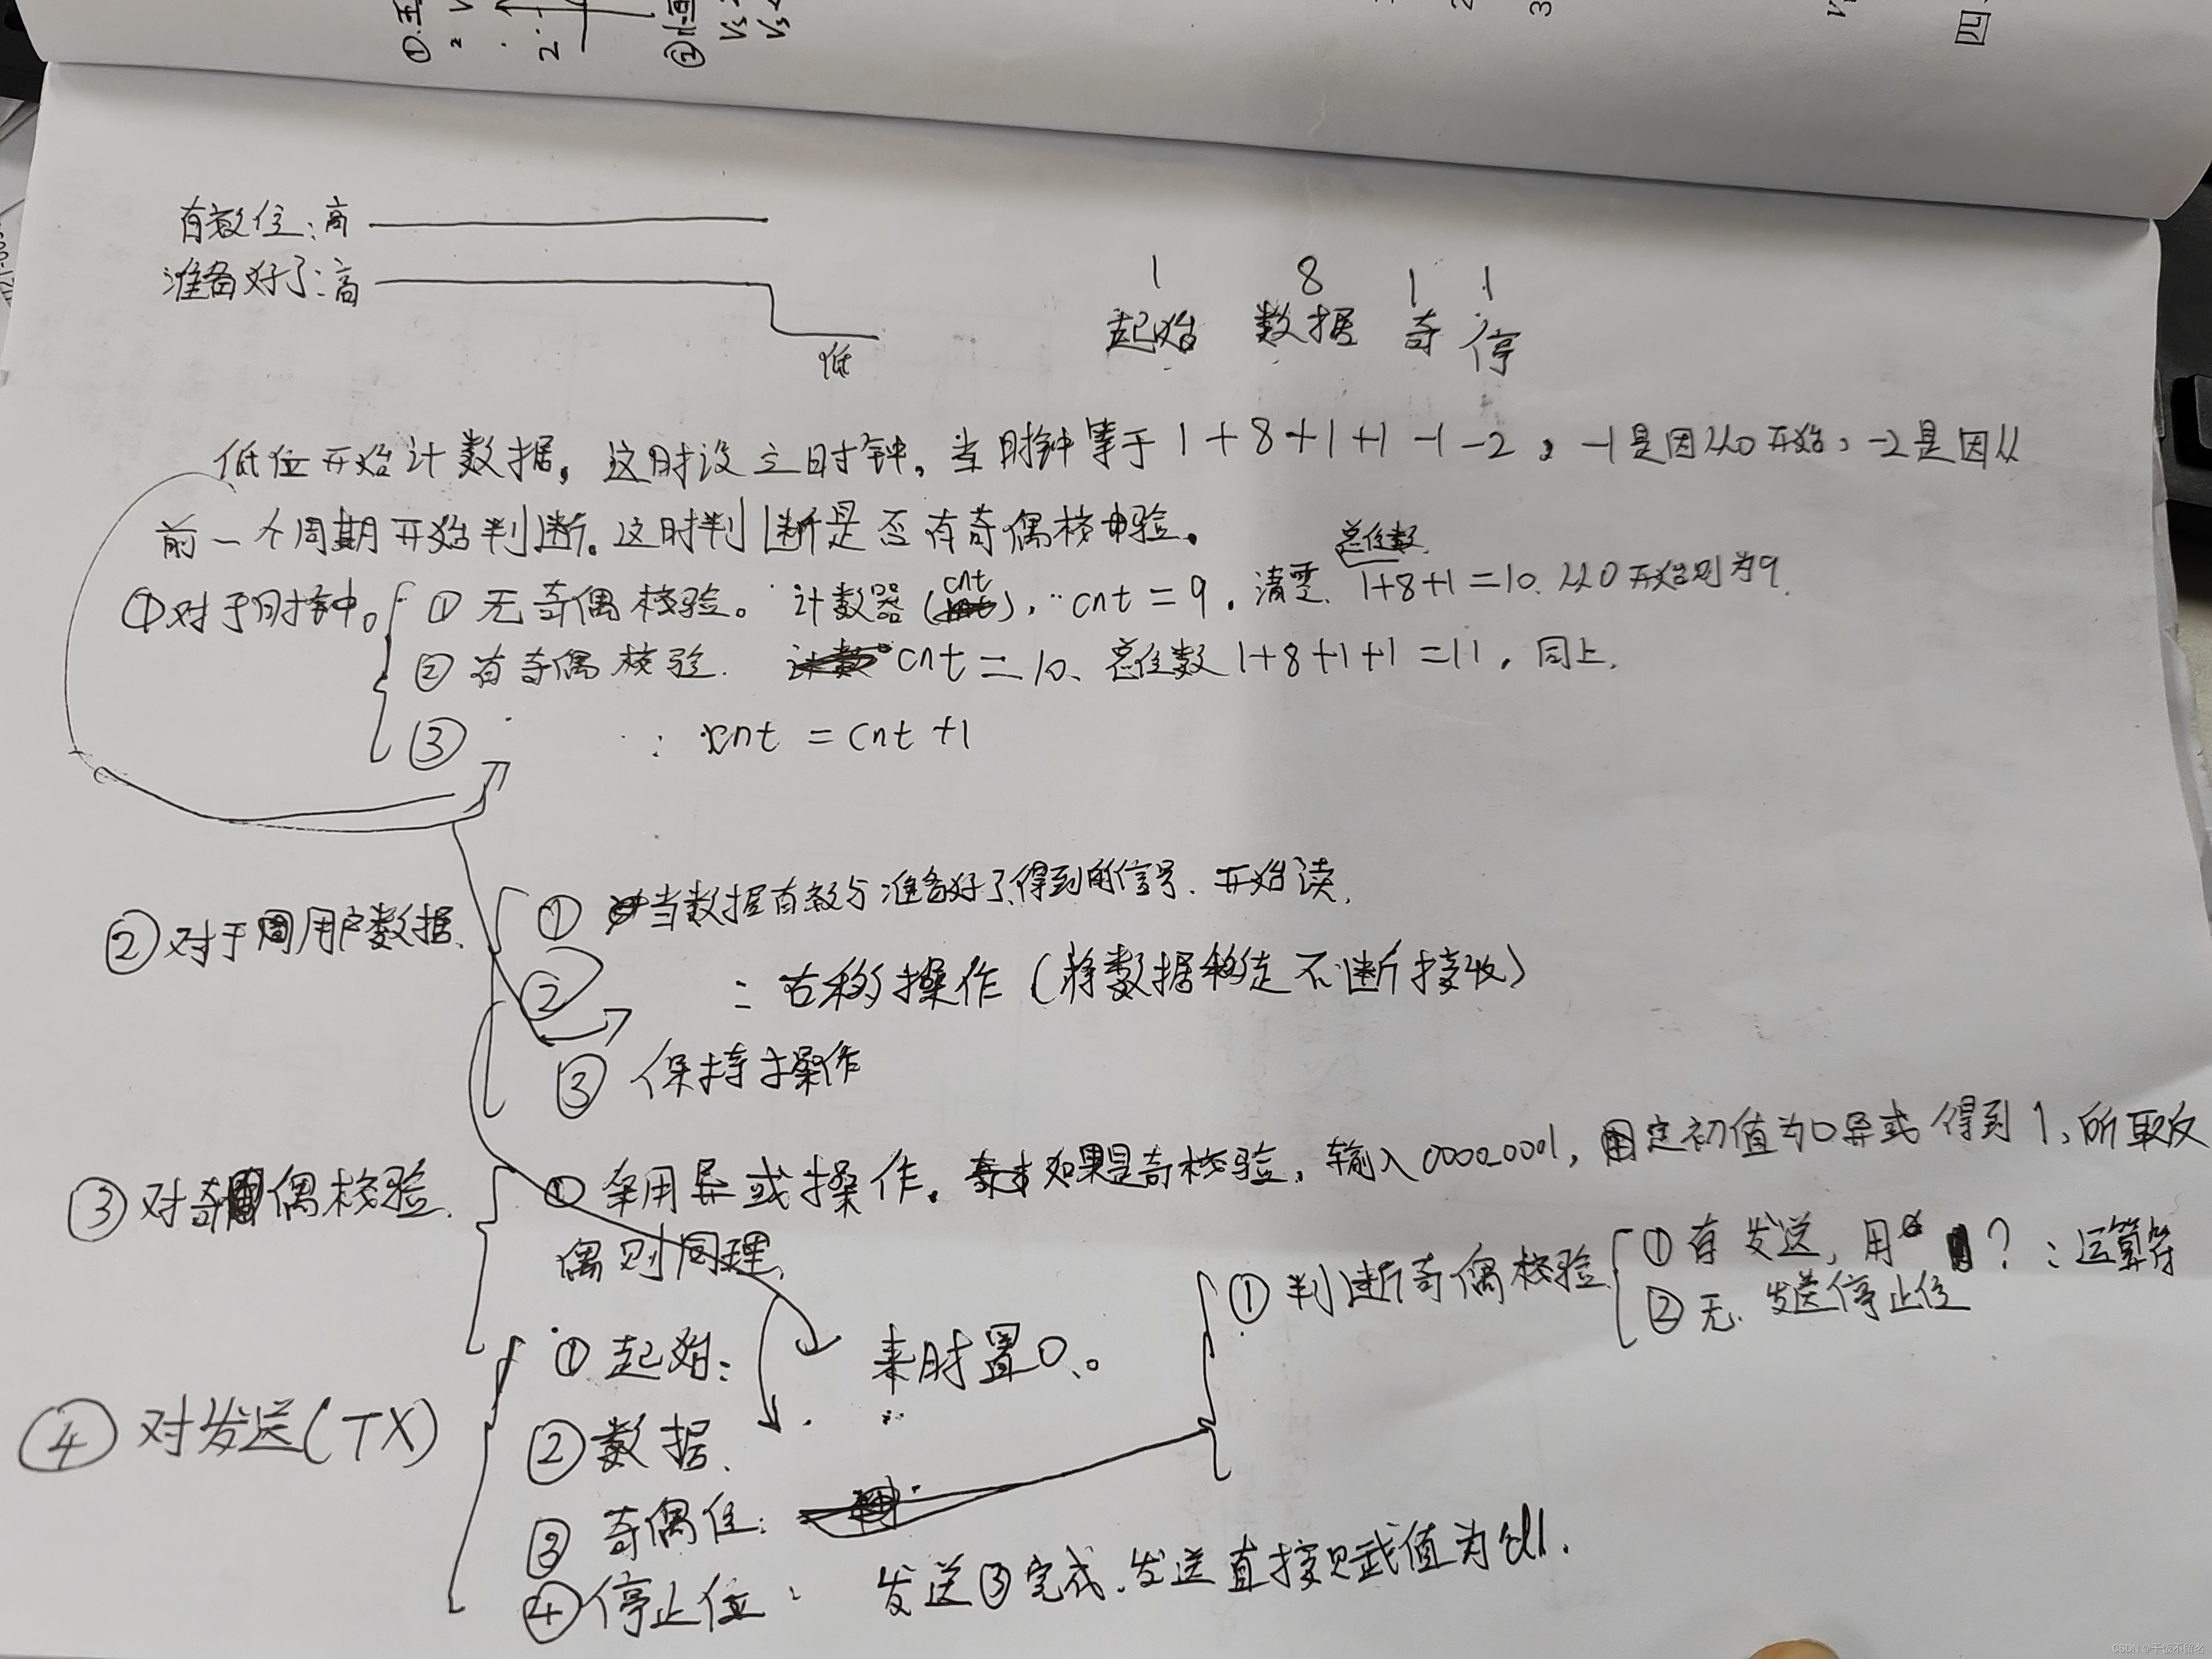 有效位:高
准备好了:高
低
1 8 1 1
起始 数据 奇 停
低位开始计数据,这时设立时钟。当时钟等于1+8+1+1-1-2,-1是因从0开始,-2是因从
前一个周期开始判断。这时判断是否有奇偶校验。
①对于时钟。
①无奇偶校验。计数器(cnt),cnt=9.清零.1+8+1=10.从0开始则为9.
总位数
②有奇偶校验. cnt=10、总位数1+8+1+1=11,同上.
③ : cnt = cnt+1
②对于用户数据.
①当数据有效与准备好了得到的信号.开始读.
② :右移操作(将数据移走不断接收)
③保持操作
③对奇偶校验.
①采用异或操作。如果是奇校验,输入0000_0001,定初值为0异或得到1,所取反
偶则同理.
④对发送(TX)
①起始: 来时置0。
②数据.
③奇偶位:
①判断奇偶校验
①有发送,用?:运算符
②无.发送停止位
④停止位: 发送③完成.发送直接赋值为1'd1.
①
2
②
Vs
Vs
四、
CSDN @干饭不留名